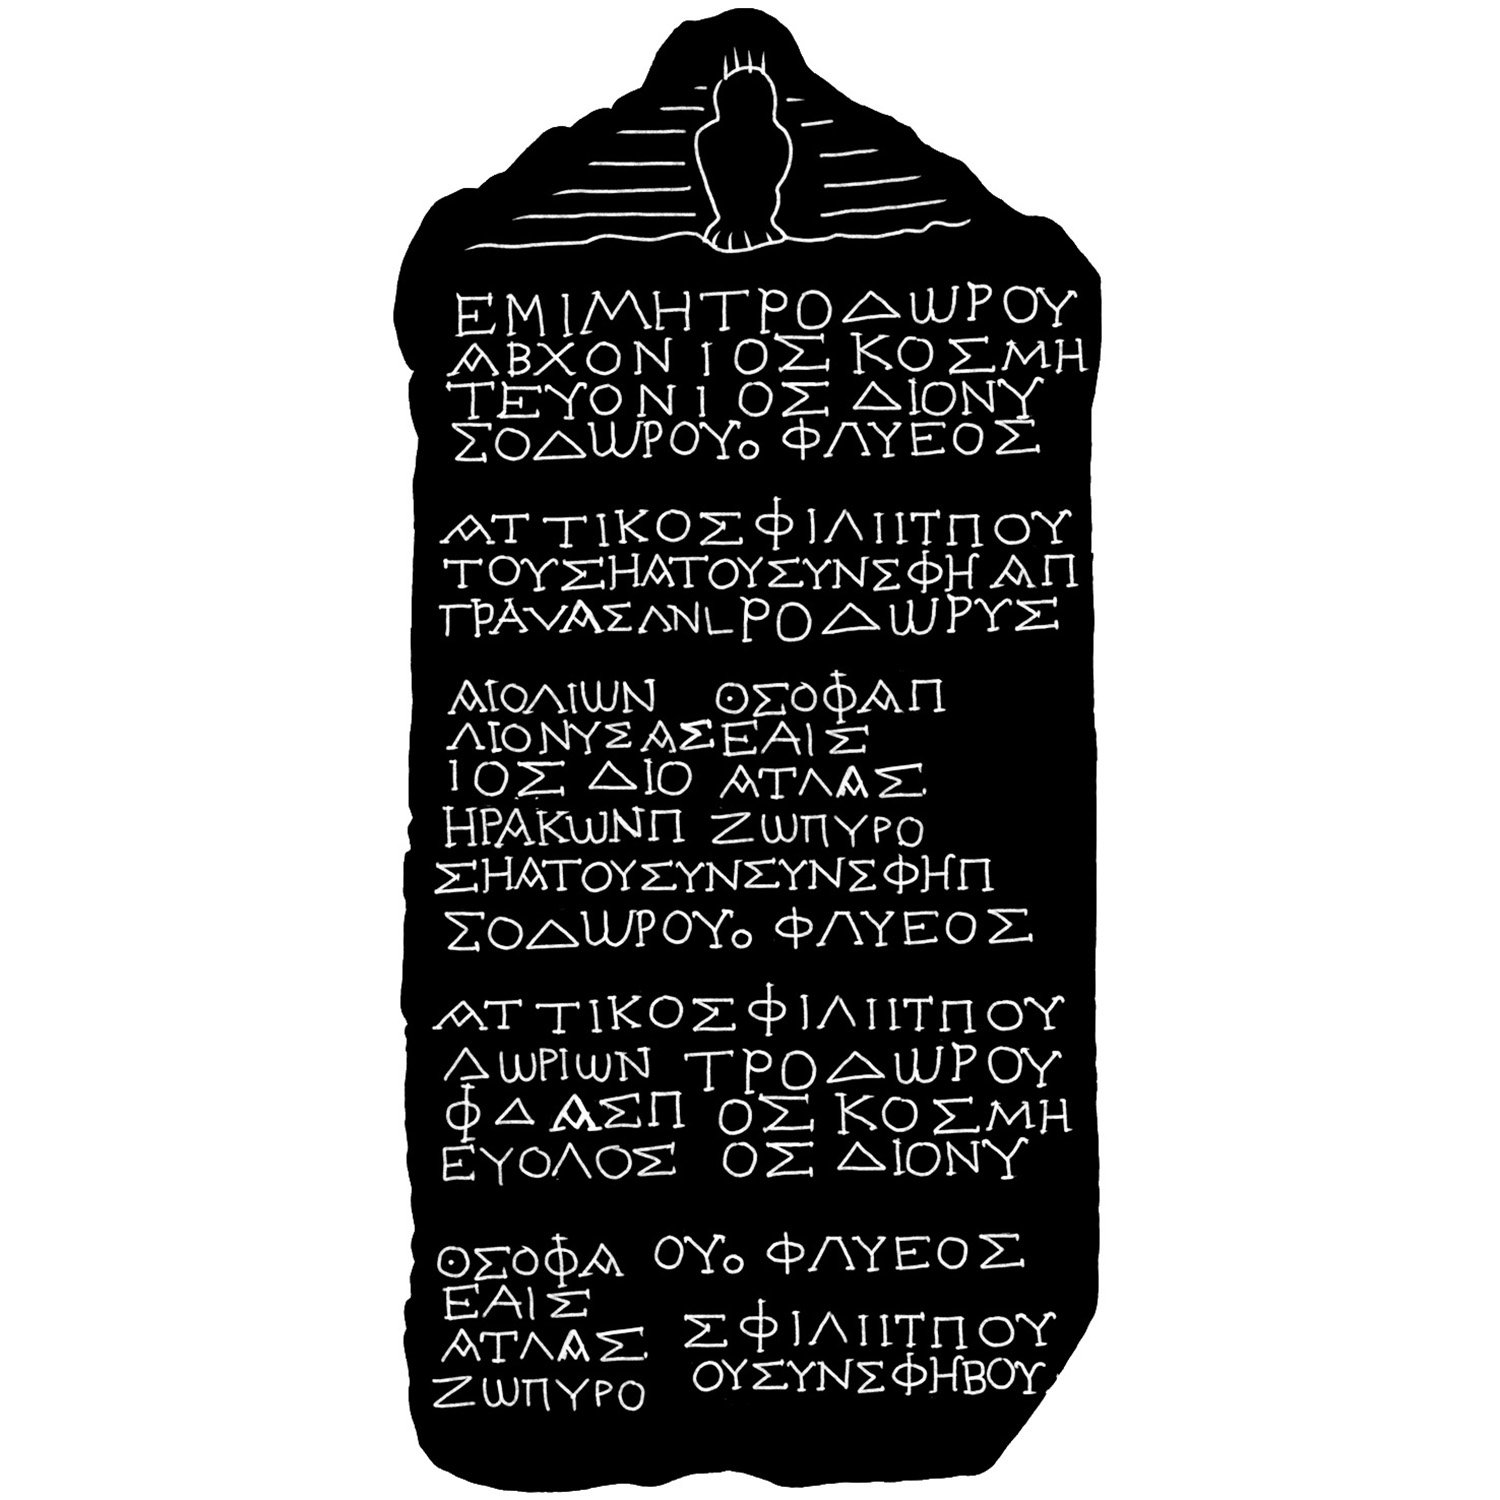 ΕΜΙΜΗΤΡΟΔΩΡΟΥ
ΑΒΧΟΝΙΟΣ ΚΟΣΜΗ
ΤΕΥΟΝΙΟΣ ΔΙΟΝΥ
ΣΟΔΩΡΟΥο ΦΛΥΕΟΣ
ΑΤΤΙΚΟΣΦΙΛΙΙΤΠΟΥ
ΤΟΥΣΗΑΤΟΥΣΥΝΣΦΗ ΑΠ
ΓΡΑVΑΣΛΝLΡΟΔΩΡΥΣ
ΑΙΟΛΙΩΝ ΘΣΟΦΑΠ
ΛΙΟΝΥΣΑΣΕΑΙΣ
ΙΟΣ ΔΙΟ ΑΤΛΑΣ
ΗΡΑΚΩΝΠ ΖΩΠΥΡΟ
ΣΗΑΤΟΥΣΥΝΣΥΝΣΦΗΠ
ΣΟΔΩΡΟΥο ΦΛΥΕΟΣ
ΑΤΤΙΚΟΣΦΙΛΙΙΤΠΟΥ
ΔΩΡΙΩΝ ΤΡΟΔΩΡΟΥ
ΦΔΑΣΠ ΟΣ ΚΟΣΜΗ
ΕΥΟΛΟΣ ΟΣ ΔΙΟΝΥ
ΘΣΟΦΑ ΟΥο ΦΛΥΕΟΣ
ΕΑΙΣ
ΑΤΛΑΣ ΣΦΙΛΙΙΤΠΟΥ
ΖΩΠΥΡΟ ΟΥΣΥΝΣΦΗΒΟΥ